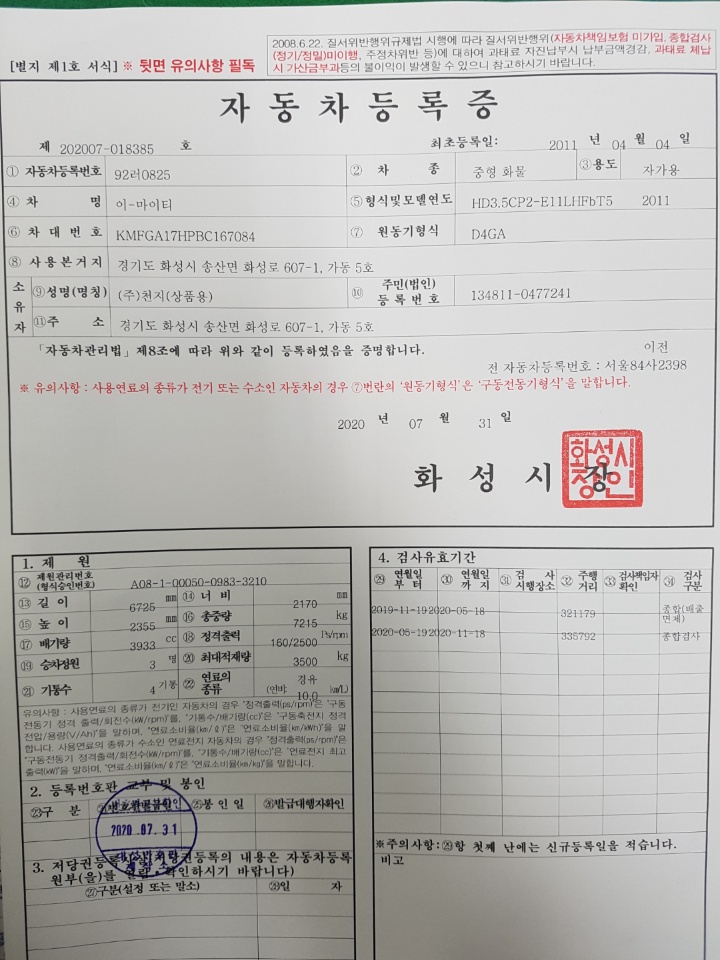 [별지 제1호 서식] ※ 뒷면 유의사항 필독
2008.6.22. 질서위반행위규제법 시행에 따라 질서위반행위(자동차책임보험 미가입, 종합검사
(정기/정밀)미이행, 주정차위반 등)에 대하여 과태료 자진납부시 납부금액경감, 과태료 체납
시 가산금부과등의 불이익이 발생할 수 있으니 참고하시기 바랍니다.
자동차등록증
제 202007-018385 호 최초등록일: 2011 년 04 월 04 일
① 자동차등록번호 92러0825 ② 차 종 중형 화물 ③용도 자가용
④ 차 명 이-마이티 ⑤형식및모델연도 HD3.5CP2-E11LHFbT5 2011
⑥ 차 대 번 호 KMFGA17HPBC167084 ⑦ 원동기형식 D4GA
⑧ 사 용 본 거 지 경기도 화성시 송산면 화성로 607-1, 가동 5호
소유자 ⑨성명(명칭) (주)천지(상품용) ⑩ 주민(법인)등 록 번 호 134811-0477241
⑪주 소 경기도 화성시 송산면 화성로 607-1, 가동 5호
「자동차관리법」제8조에 따라 위와 같이 등록하였음을 증명합니다. 이전
전 자동차등록번호 : 서울84사2398
※ 유의사항 : 사용연료의 종류가 전기 또는 수소인 자동차의 경우 ⑦번란의 '원동기형식'은 '구동전동기형식'을 말합니다.
2020 년 07 월 31 일
화 성 시 장
화성시
장인
1. 제 원
⑫ 제원관리번호(형식승인번호) A08-1-00050-0983-3210
⑬ 길 이 6725 mm ⑭ 너 비 2170 mm
⑮ 높 이 2355 mm ⑯ 총중량 7215 kg
⑰ 배기량 3933 cc ⑱ 정격출력 160/2500 Ps/rpm
⑲ 승차정원 3 명 ⑳ 최대적재량 3500 kg
㉑ 기통수 4 기통 ㉒ 연료의 종류 경유 (연비: 10.0 km/L)
유의사항 : 사용연료의 종류가 전기인 자동차의 경우 '정격출력(ps/rpm)'은 '구동
전동기 정격 출력/회전수(kW/rpm)'를, '기통수/배기량(cc)'은 '구동축전지 정격
전압/용량(V/Ah)'를 말하며, '연료소비율(km/ℓ)'은 '연료소비율(km/kWh)'을 말
합니다. 사용연료의 종류가 수소인 연료전지 자동차의 경우 '정격출력(ps/rpm)'은
'구동전동기 정격출력/회전수(kW/rpm)'를, '기통수/배기량(cc)'은 '연료전지 최고
출력(kW)'을 말하며, '연료소비율(km/ℓ)'은 '연료소비율(km/kg)'을 말합니다.
2. 등록번호판 교부 및 봉인
㉓구 분 ㉕봉 인 일 ㉖발급대행자확인
2020.07.31
3. 저당권등록 저당권등록의 내용은 자동차등록
원부(을)를 열람·확인하시기 바랍니다)
㉗구분(설정 또는 말소) ㉘일 자
4. 검사유효기간
㉙ 연월일부 터 ㉚ 연월일까 지 ㉛ 검 사시행장소 ㉜ 주행거리 ㉝ 검사책임자확인 ㉞ 검사구분
2019-11-19 2020-05-18 321179 종합(배출면제)
2020-05-19 2020-11-18 335792 종합검사
※주의사항:㉙항 첫째 난에는 신규등록일을 적습니다.
비고